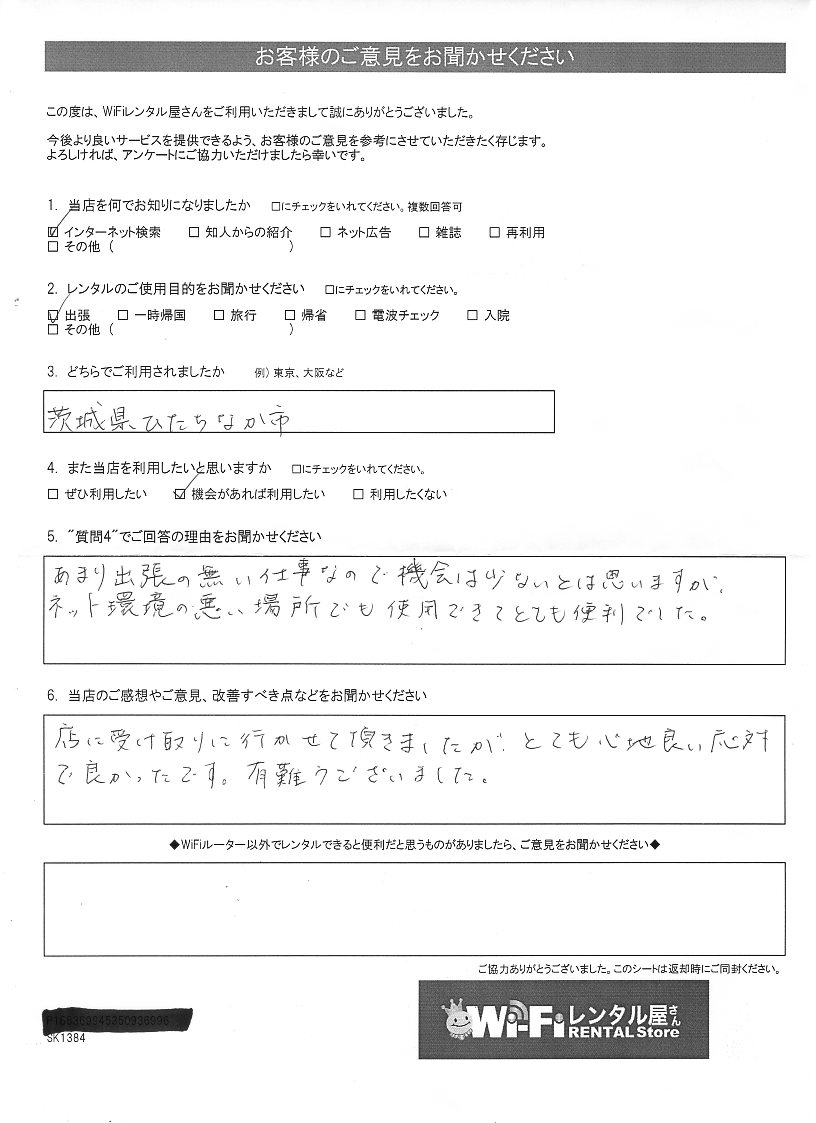 お客様のご意見をお聞かせください
この度は、WiFiレンタル屋さんをご利用いただきまして誠にありがとうございました。
今後より良いサービスを提供できるよう、お客様のご意見を参考にさせていただきたく存じます。
よろしければ、アンケートにご協力いただけましたら幸いです。
1. 当店を何でお知りになりましたか □にチェックをいれてください。複数回答可
☑ インターネット検索 □ 知人からの紹介 □ ネット広告 □ 雑誌 □ 再利用
□ その他 ( )
2. レンタルのご使用目的をお聞かせください □にチェックをいれてください。
☑ 出張 □ 一時帰国 □ 旅行 □ 帰省 □ 電波チェック □ 入院
□ その他 ( )
3. どちらでご利用されましたか 例) 東京、大阪など
茨城県ひたちなか市
4. また当店を利用したいと思いますか □にチェックをいれてください。
□ ぜひ利用したい ☑ 機会があれば利用したい □ 利用したくない
5. "質問4"でご回答の理由をお聞かせください
あまり出張の無い仕事なので機会は少ないとは思いますが、
ネット環境の悪い場所でも使用できてとても便利でした。
6. 当店のご感想やご意見、改善すべき点などをお聞かせください
店に受け取りに行かせて頂きましたが、とても心地良い応対
で良かったです。有難うございました。
◆WiFiルーター以外でレンタルできると便利だと思うものがありましたら、ご意見をお聞かせください◆
ご協力ありがとうございました。このシートは返却時にご同封ください。
SK1384
Wi-Fiレンタル屋さん
RENTAL Store